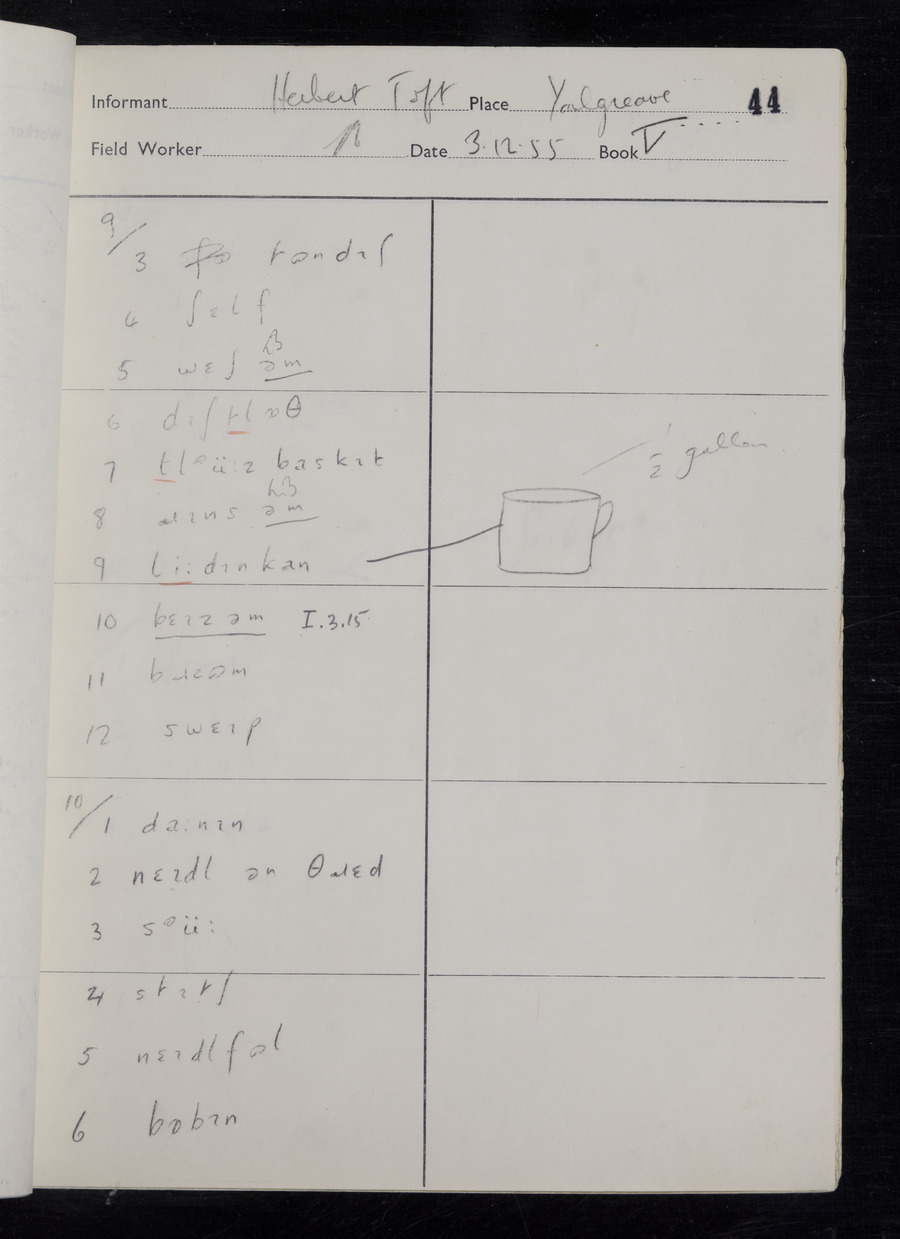 Informant Herbert Toft Place Youlgreave 44
Field Worker Date 3.12.55 Book V
9/
3
4 ʃɛlf
5 wɛʃ əm
6 dɪʃtlɒθ
7 tlᵊüːz baskɪt
1/2 gallon
8 ɹɪns əm
9 liːdɪnkan
10 bɛɪzəm I.3.15
11
12 swɛɪp
10/
1 daːnɪn
2 nɛɪdl ən θɹɛd
3 sᵊüː
4 stɪtʃ
5 nɛɪdlfəl
6 bɒbɪn